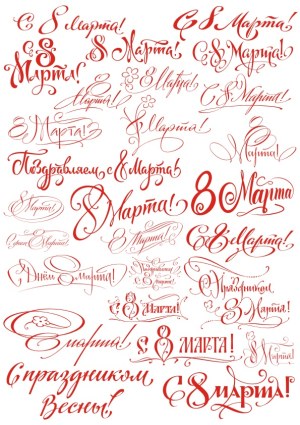 С 8 Марта!
С 8 Марта!
С 8 Марта!
8 Марта!
С 8 Марта!
8 Марта!
8 Марта!
С 8 Марта!
8 Марта!
8 Марта!
8 Марта!
Поздравляем с 8 Марта!
8 Марта!
8 Марта
8 Марта!
8 Марта!
8 Марта!
С 8 Марта!
С Днём 8 марта!
Поздравляем
с 8 Марта!
С Праздником,
8 Марта!
С 8 МАРТА!
8 марта!
С 8 МАРТА!
С 8 Марта!
С праздником
Весны!
С 8 марта!